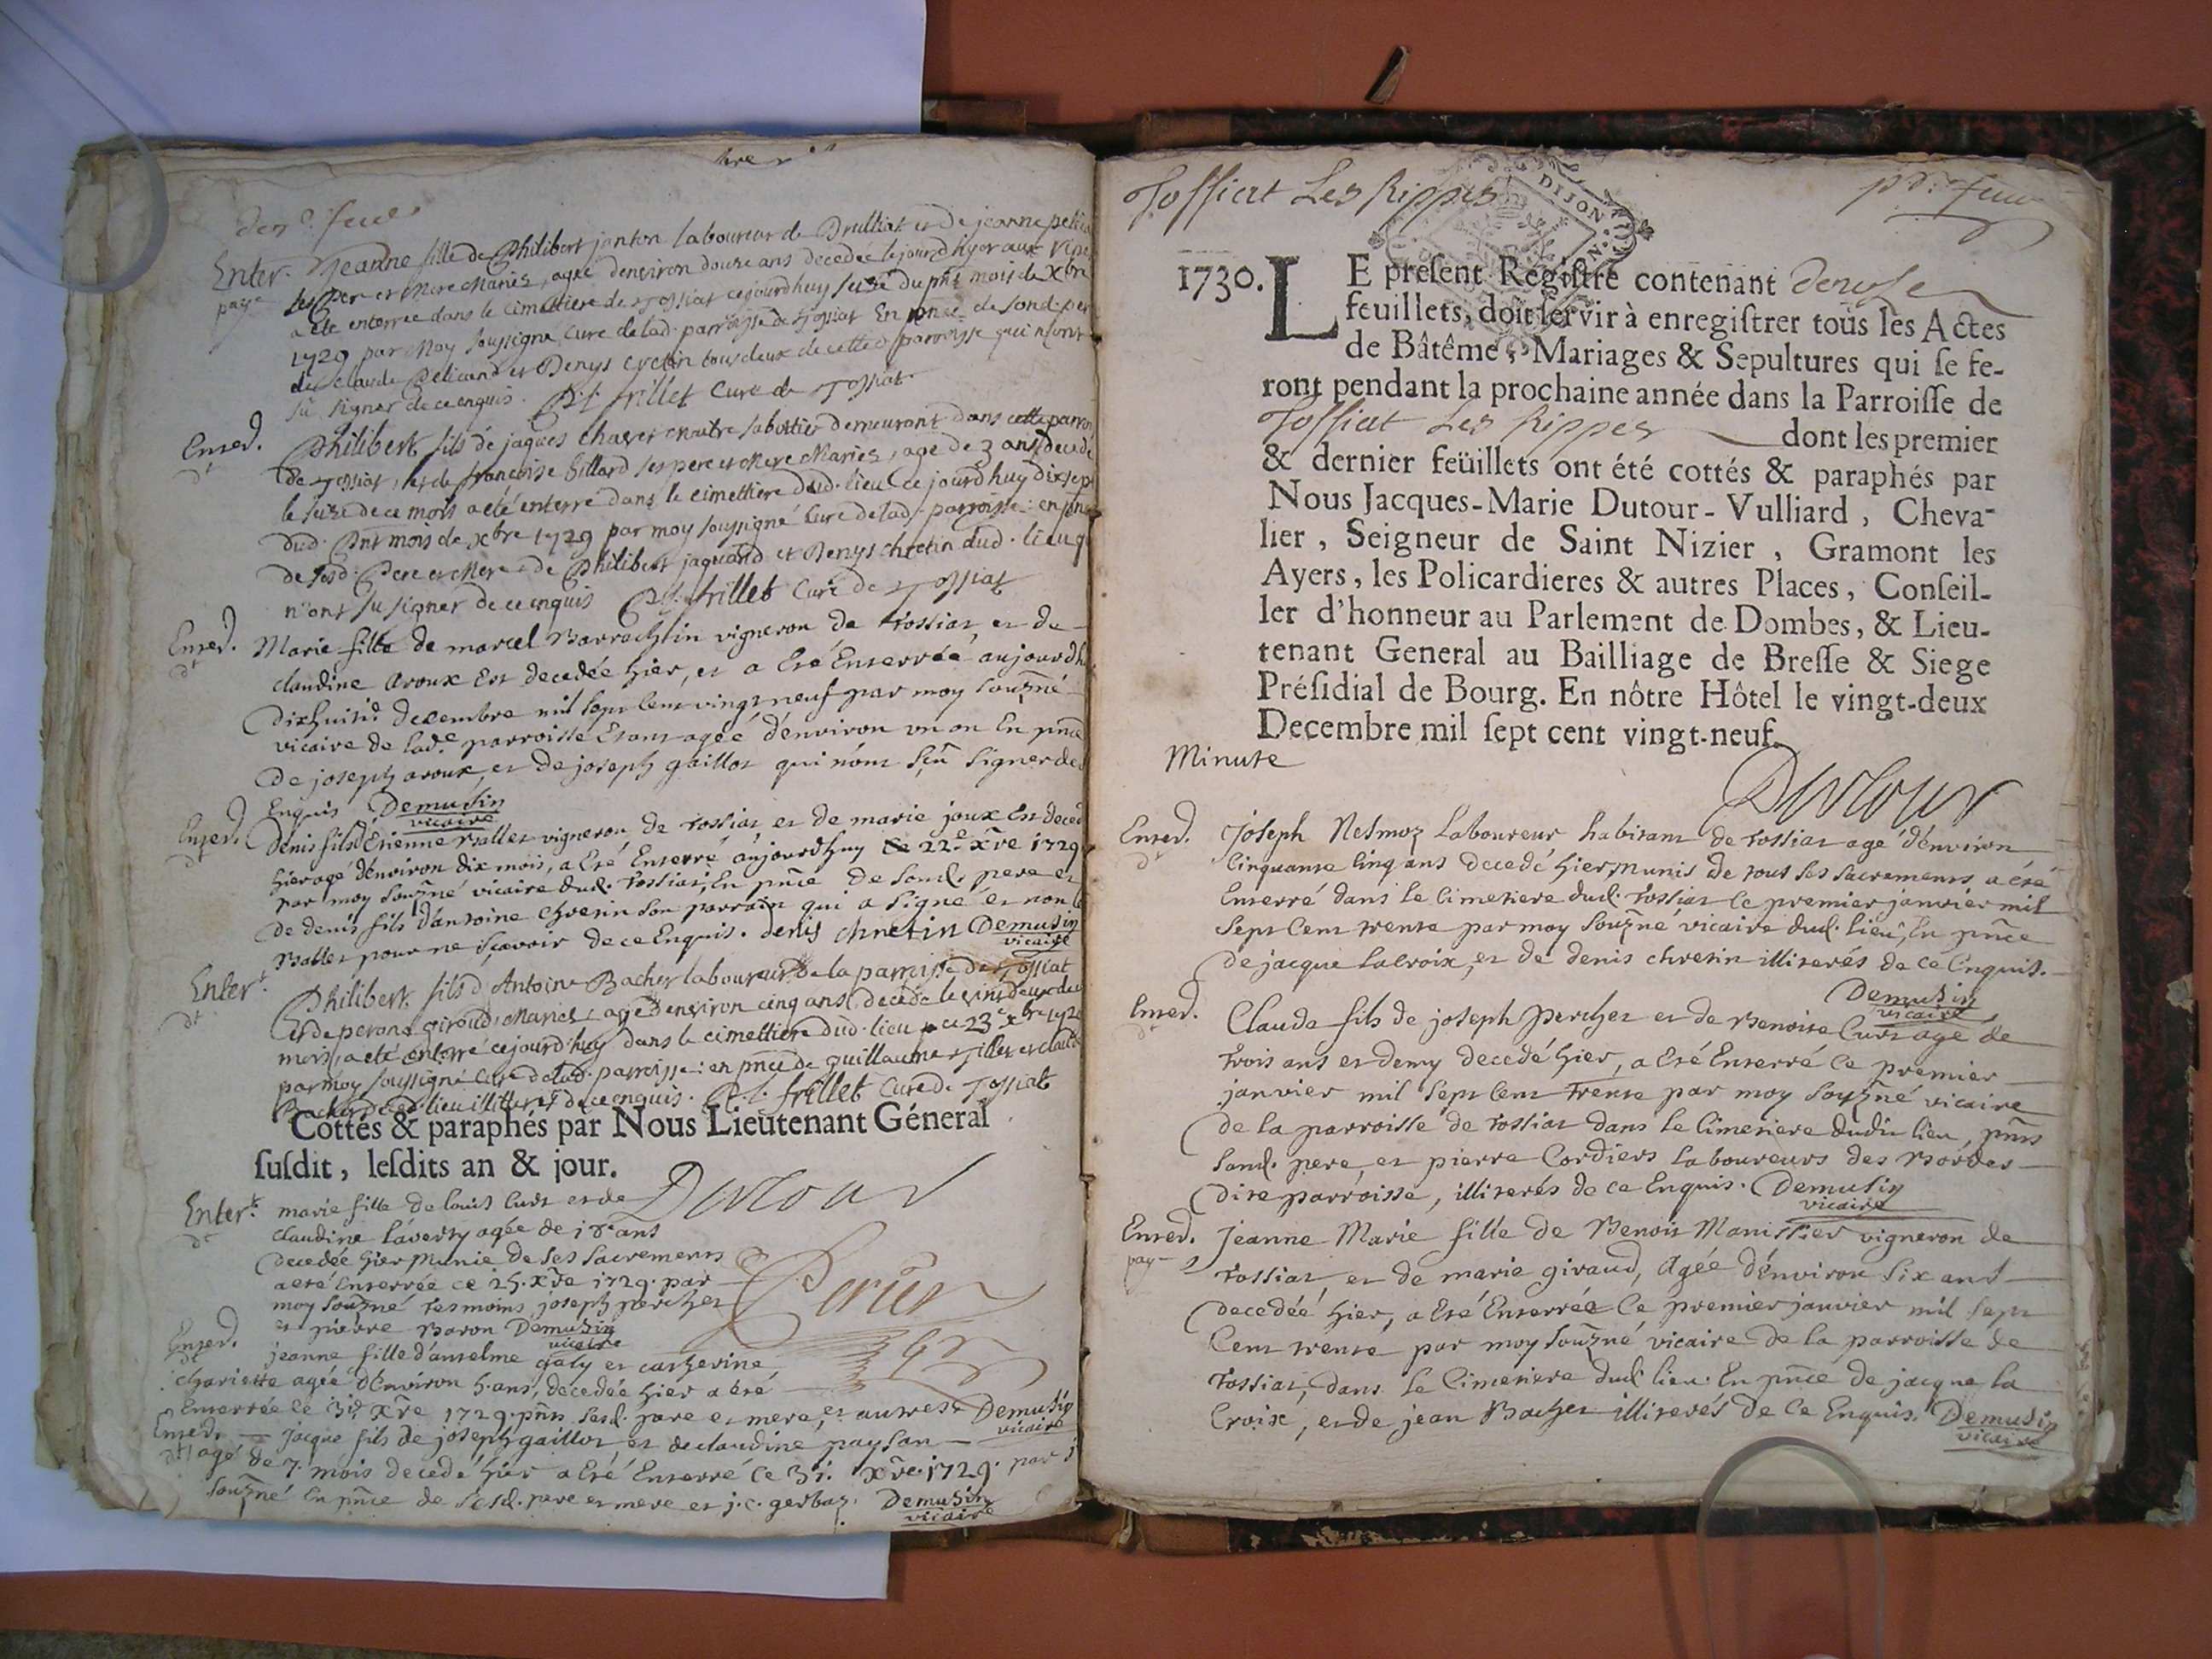 der.e feuil
Enter. Jeanne fille de Philibert janton laboureur de Druilliat et de jeanne
paye ses Pere et Mere Mariés, agée d'environ douze ans decedée le jourd'hyer aux
a été enterrée dans le cimettiere de Tossiat cejourd'huy seize du pnt mois de Xbre
1729 par Moy soussigné Curé de lad. parroisse de Tossiat En pnce de sond. per
de Claude et Denys cretin tous deux de cette d. parroisse qui n'ont
sû signer de ce enquis. frillet Curé de Tossiat
Enterd. Philibert fils de jaques maitre sabottier demeurant dans cette
dt de Tossiat, et de françoise billard ses pere et Mere Mariés, agé de 3 ans decede
le seize de ce mois a eté enterré dans le cimettiere dud. lieu ce jourd'huy dixsept
dud. pnt mois de Xbre 1729 par moy soussigné Curé de lad. parroisse : en
de sesd. Pere et Mere de Philibert jaquand et Denys chretin dud. lieu
n'ont su signer de ce enquis frillet Curé de Tossiat
Enterd. Marie fille de marcel Barrachin vigneron de Tossiat, et de
dt claudine aroux Est decedée hier, et a Eté Enterrée aujourdh
Dixhuitie Decembre mil sept cent vingt neuf par moy souzné
vicaire de lade parroisse Etant agée d'environ un an En pnce
De joseph aroux, et de joseph gaillot qui n'ont sçu signer de
Enquis Demusin
vicaire
Enterd. Denis fils d'Etienne Ballet vigneron de Tossiat et de marie joux Est deced
dt hier agé d'environ dix mois, a Eté Enterré aujourdhuy Ce 22e Xre 1729
par moy souzné vicaire dud. Tossiat, En pnce de sond. pere et
de denis fils d'antoine chretin son parrain qui a signé et non le
Ballet pour ne sçavoir de ce Enquis. denis chretin Demusin
vicaire
Entert. Philibert fils d'Antoine Bacher laboureur de la parroisse de Tossiat
dt et de perone giroud, Mariés, agé d'environ cinq ans, decedé le
mois, a eté enterré cejourd'huy dans le cimettiere dud. lieu ce 23e Xbre 1729
par moy soussigné Curé de lad. parroisse : en pnce de guillaume et claude
Bacher dud. lieu illitterés de ce enquis. frillet Curé de Tossiat
Cottés & paraphés par Nous Lieutenant Géneral
susdit, lesdits an & jour.
Entert. marie fille de louis Curt et de Dutour
dt claudine laverty agée de ans
Decedée hier Munie de ses sacrements
a eté Enterrée ce 25. Xre 1729. par
moy souzné tesmoins joseph percher
et pierre Baron Demusin
vicaire
Enterd. jeanne fille d'anselme galy et catherine
dt chariette agée d'Environ 5. ans, decedée hier a eté
Enterrée le 31e Xre 1729. pnts sesd. pere et mere, et autres Demusin
vicaire
Enterd. jacque fils de joseph gaillot et de claudine paysan
dt agé de 7. mois decedé hier a Eté Enterré Ce 31. Xre. 1729. par
souzné En pnce de sesd. pere et mere et j. c. gerbaz. Demusin
vicaire
Tossiat Les Rippes
DIJON
1730. LE present Registre contenant douse
feuillets, doit servir à enregistrer tous les Actes
de Bâtême, Mariages & Sepultures qui se fe-
ront pendant la prochaine année dans la Parroisse de
Tossiat Les Rippes dont les premier
& dernier feüillets ont été cottés & paraphés par
Nous Jacques-Marie Dutour-Vulliard, Cheva-
lier, Seigneur de Saint Nizier, Gramont les
Ayers, les Policardieres & autres Places, Conseil-
ler d'honneur au Parlement de Dombes, & Lieu-
tenant General au Bailliage de Bresse & Siege
Présidial de Bourg. En nôtre Hôtel le vingt-deux
Decembre mil sept cent vingt-neuf.
Minute
Dutour
Enterd. Joseph Nesmoz Laboureur habitant de Tossiat agé d'environ
dt Cinquante Cinq ans decedé hier munis de tous ses sacrements a eté
Enterré dans le Cimetiere dud. Tossiat le premier janvier mil
sept Cent trente par moy souzné vicaire dud. lieu, En pnce
De jacque lacroix, et de denis chretin illiterés de ce Enquis.
Demusin
vicaire
Enterd. Claude fils de joseph percher et de Benoite Curt agé de
dt Trois ans et demy decedé hier, a Eté Enterré Ce premier
janvier mil sept Cent trente par moy souzné vicaire
De la parroisse de Tossiat dans le Cimetiere dudit lieu, pnts
sond. pere, et pierre Cordiers laboureurs des Bordes
Dite parroisse, illiterés de ce Enquis. Demusin
vicaire
Enterd. Jeanne Marie fille de Benoit Manissier vigneron de
paye Tossiat et de marie giraud, Agée d'Environ six ans
Decedée hier, a Eté Enterrée Ce premier janvier mil sept
Cent trente par moy souzné vicaire de la parroisse de
Tossiat, dans le Cimetiere dud. lieu. En pnce de jacque la
Croix, et de jean Bacher illiterés de Ce Enquis. Demusin
vicaire